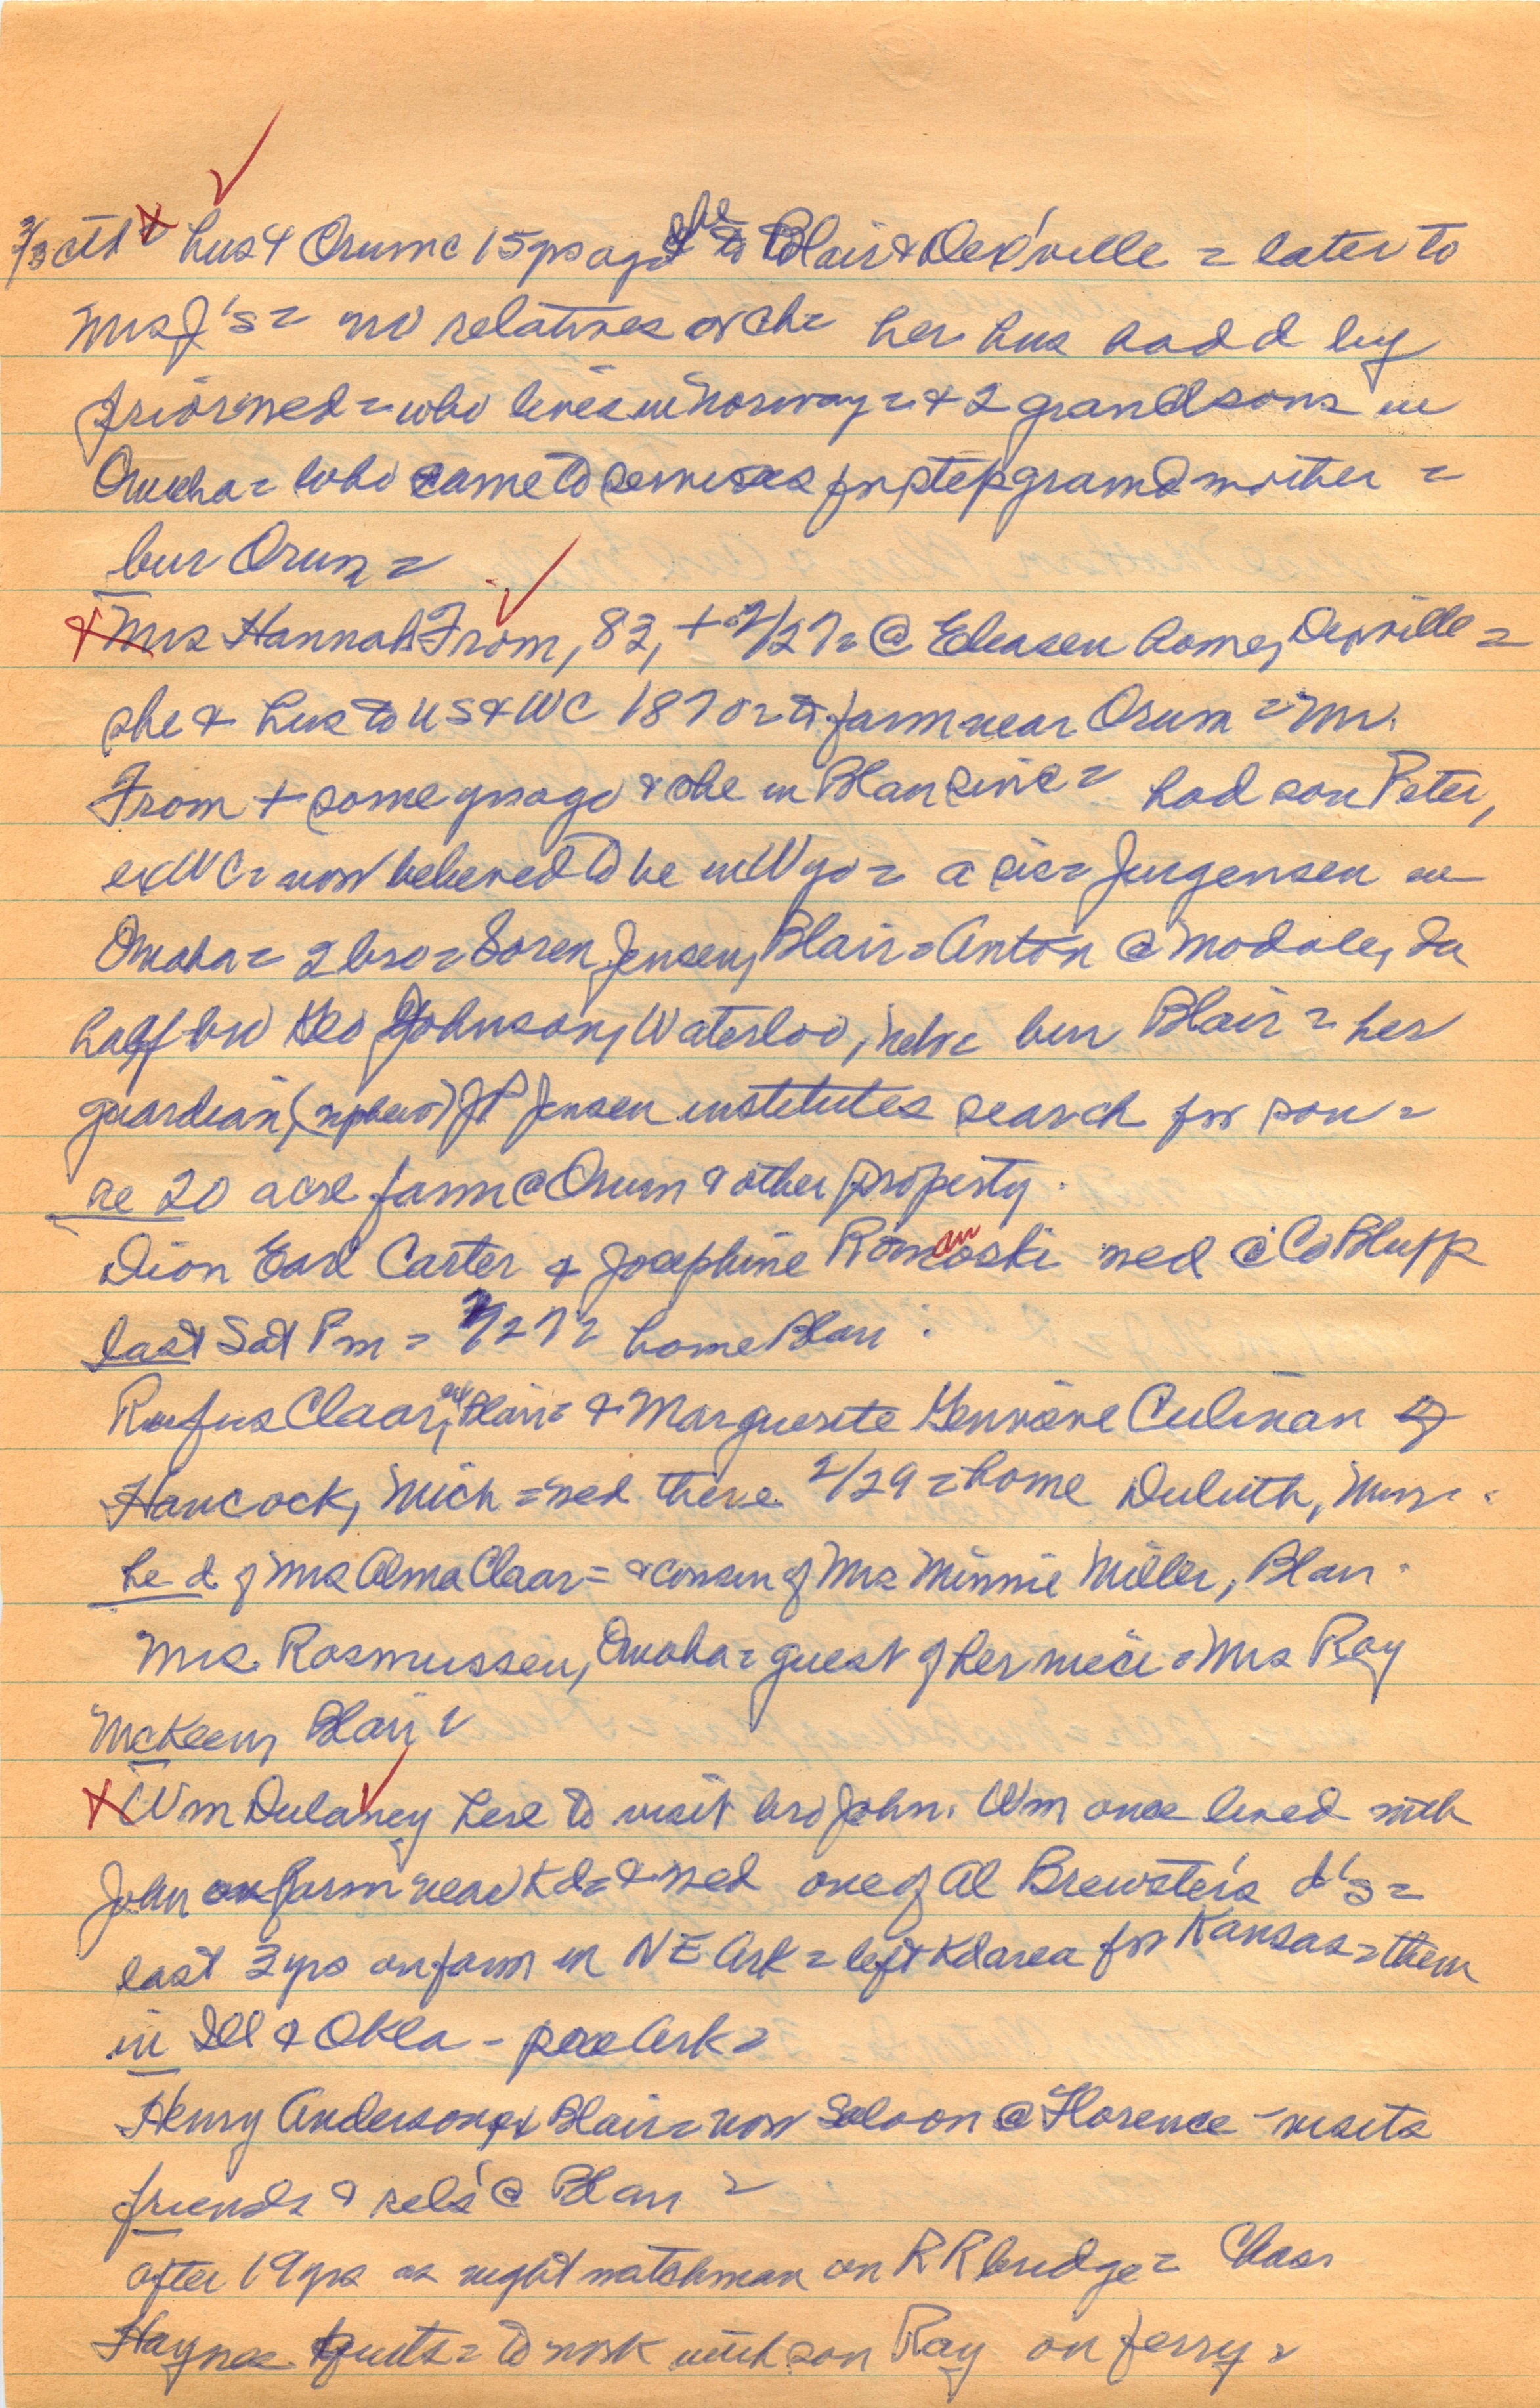 3/3 ctd hus + Orum c 15 yrs ago she to Blair & Dex'ville = later to
Mrs J's = no relatives or ch = her hus had d by
prior med = who lives in Norway = & 2 grandsons in
Omaha = who came to services for stepgrandmother =
bur Orum =
Mrs Hannah From, 82, + 2/27 = @ Eleasen home, Dexville =
she & hus to US & WC 1870 = to farm near Orum = Mr.
From + some yrs ago & she in Blair since = had son Peter,
exWC = now believed to be in Wyo = a sis = Jurgensen in
Omaha = 2 bro = Soren Jensen, Blair = Anton @ Modale, Ia
half bro Geo Johnson, Waterloo, Neb = bur Blair = her
guardian, (nephew) JP Jensen institutes search for son =
re 20 acre farm @ Orum & other property.
Dion Earl Carter & Josephine Romanoski med @ Co Bluffs
last Sat Pm = 2/27 = home Blair.
Rufus Claar, ex Blair = & Marguerite Genvieve Culinan of
Hancock, Mich = med there 2/29 = home Duluth, Minn.
he d of Mrs Alma Claar = & cousin of Mrs Minnie Miller, Blair.
Mrs. Rasmussen, Omaha = guest of her niece = Mrs Ray
McKeen, Blair =
Wm Dulaney here to visit bro John. Wm once lived with
John on farm near Kd = & med one of Al Brewster's d's =
last 3 yrs on farm in NE Ark = left Kd area for Kansas = then
in Ill & Okla - Ark =
Henry Anderson, ex Blair = now saloon @ Florence - visits
friends & rels @ Blair =
after 19 yrs as night watchman on RR bridge = Chas
Haynes quits = to work with son Ray on ferry =